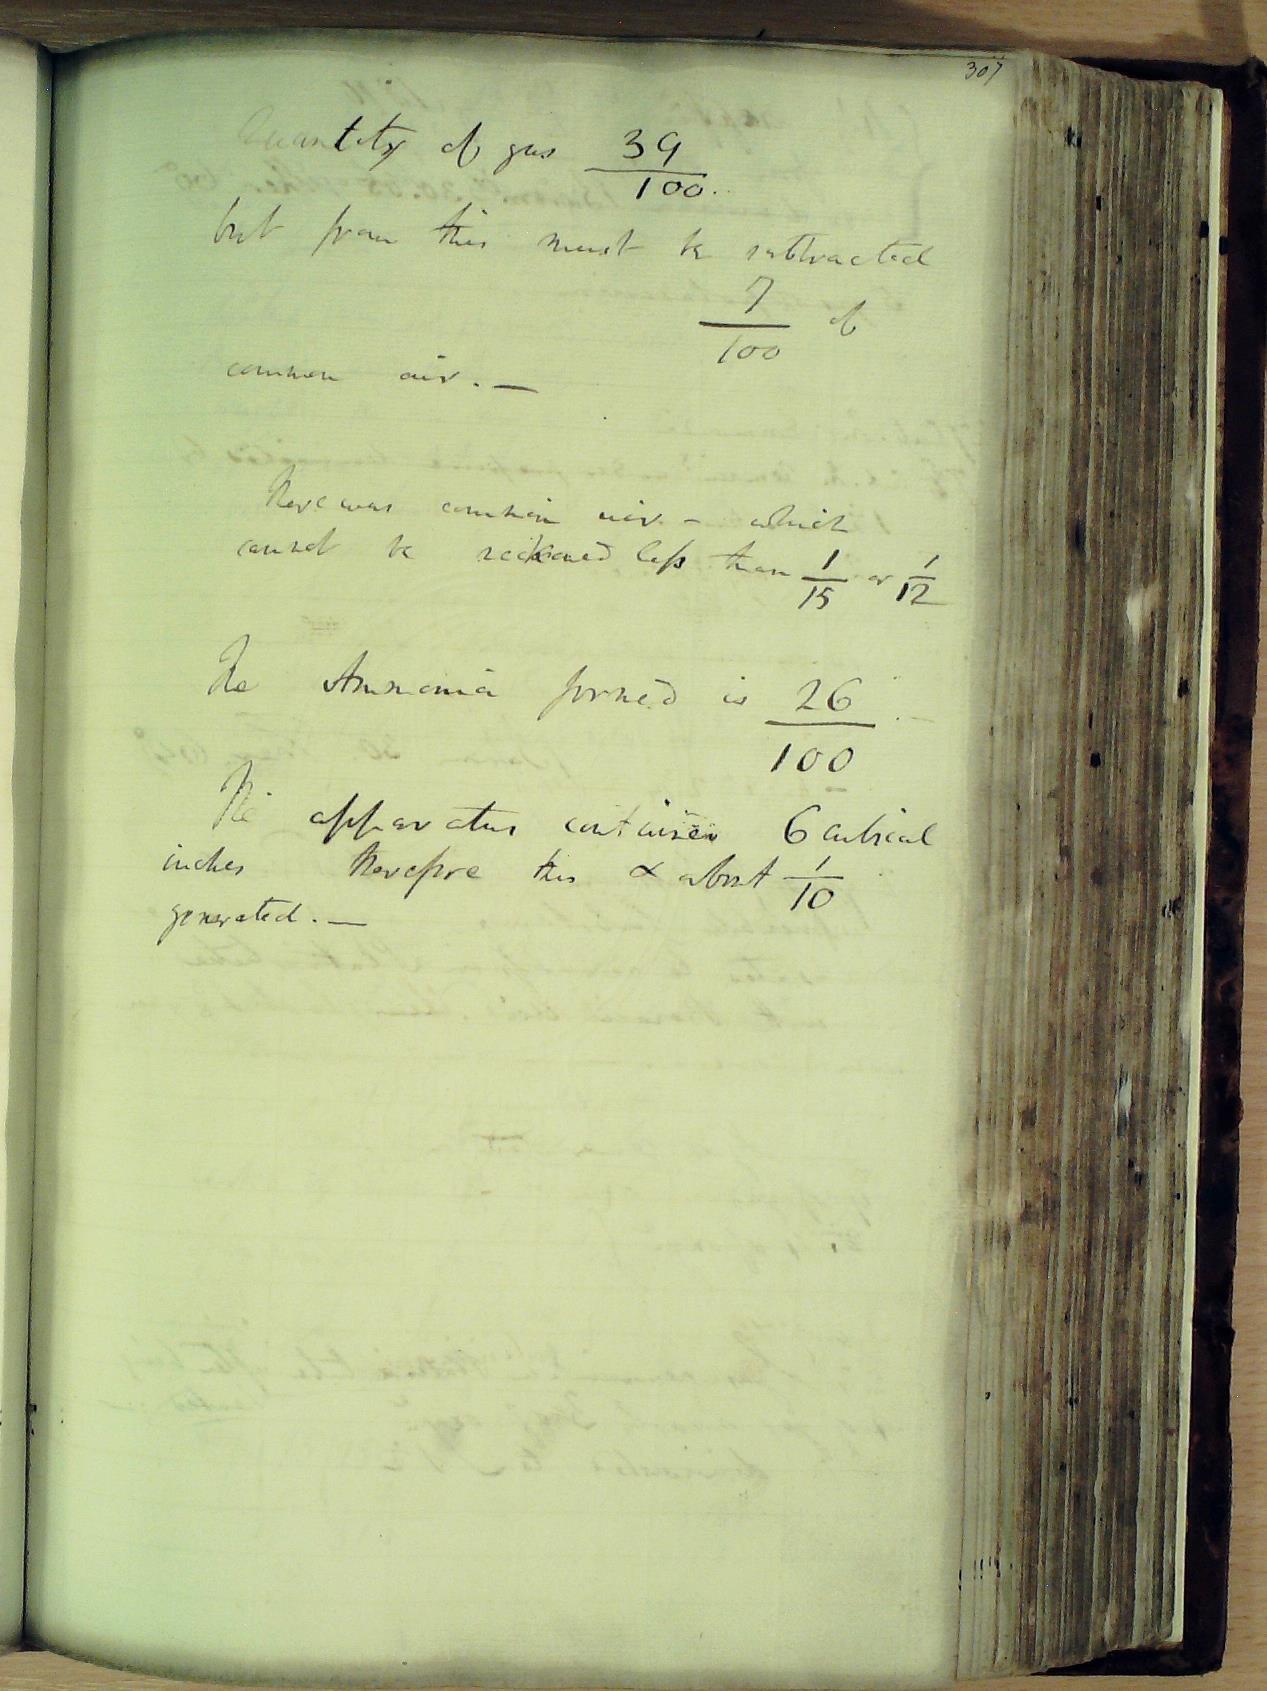 307
Quantity of gas 39/100.
but from this must be subtracted
7/100 of
common air. —
There was common air - which
cannot be reckoned less than 1/15 or 1/12
The Ammonia formed is 26/100 . —
The apparatus contained 6 cubical
inches therefore this about 1/10
generated. —